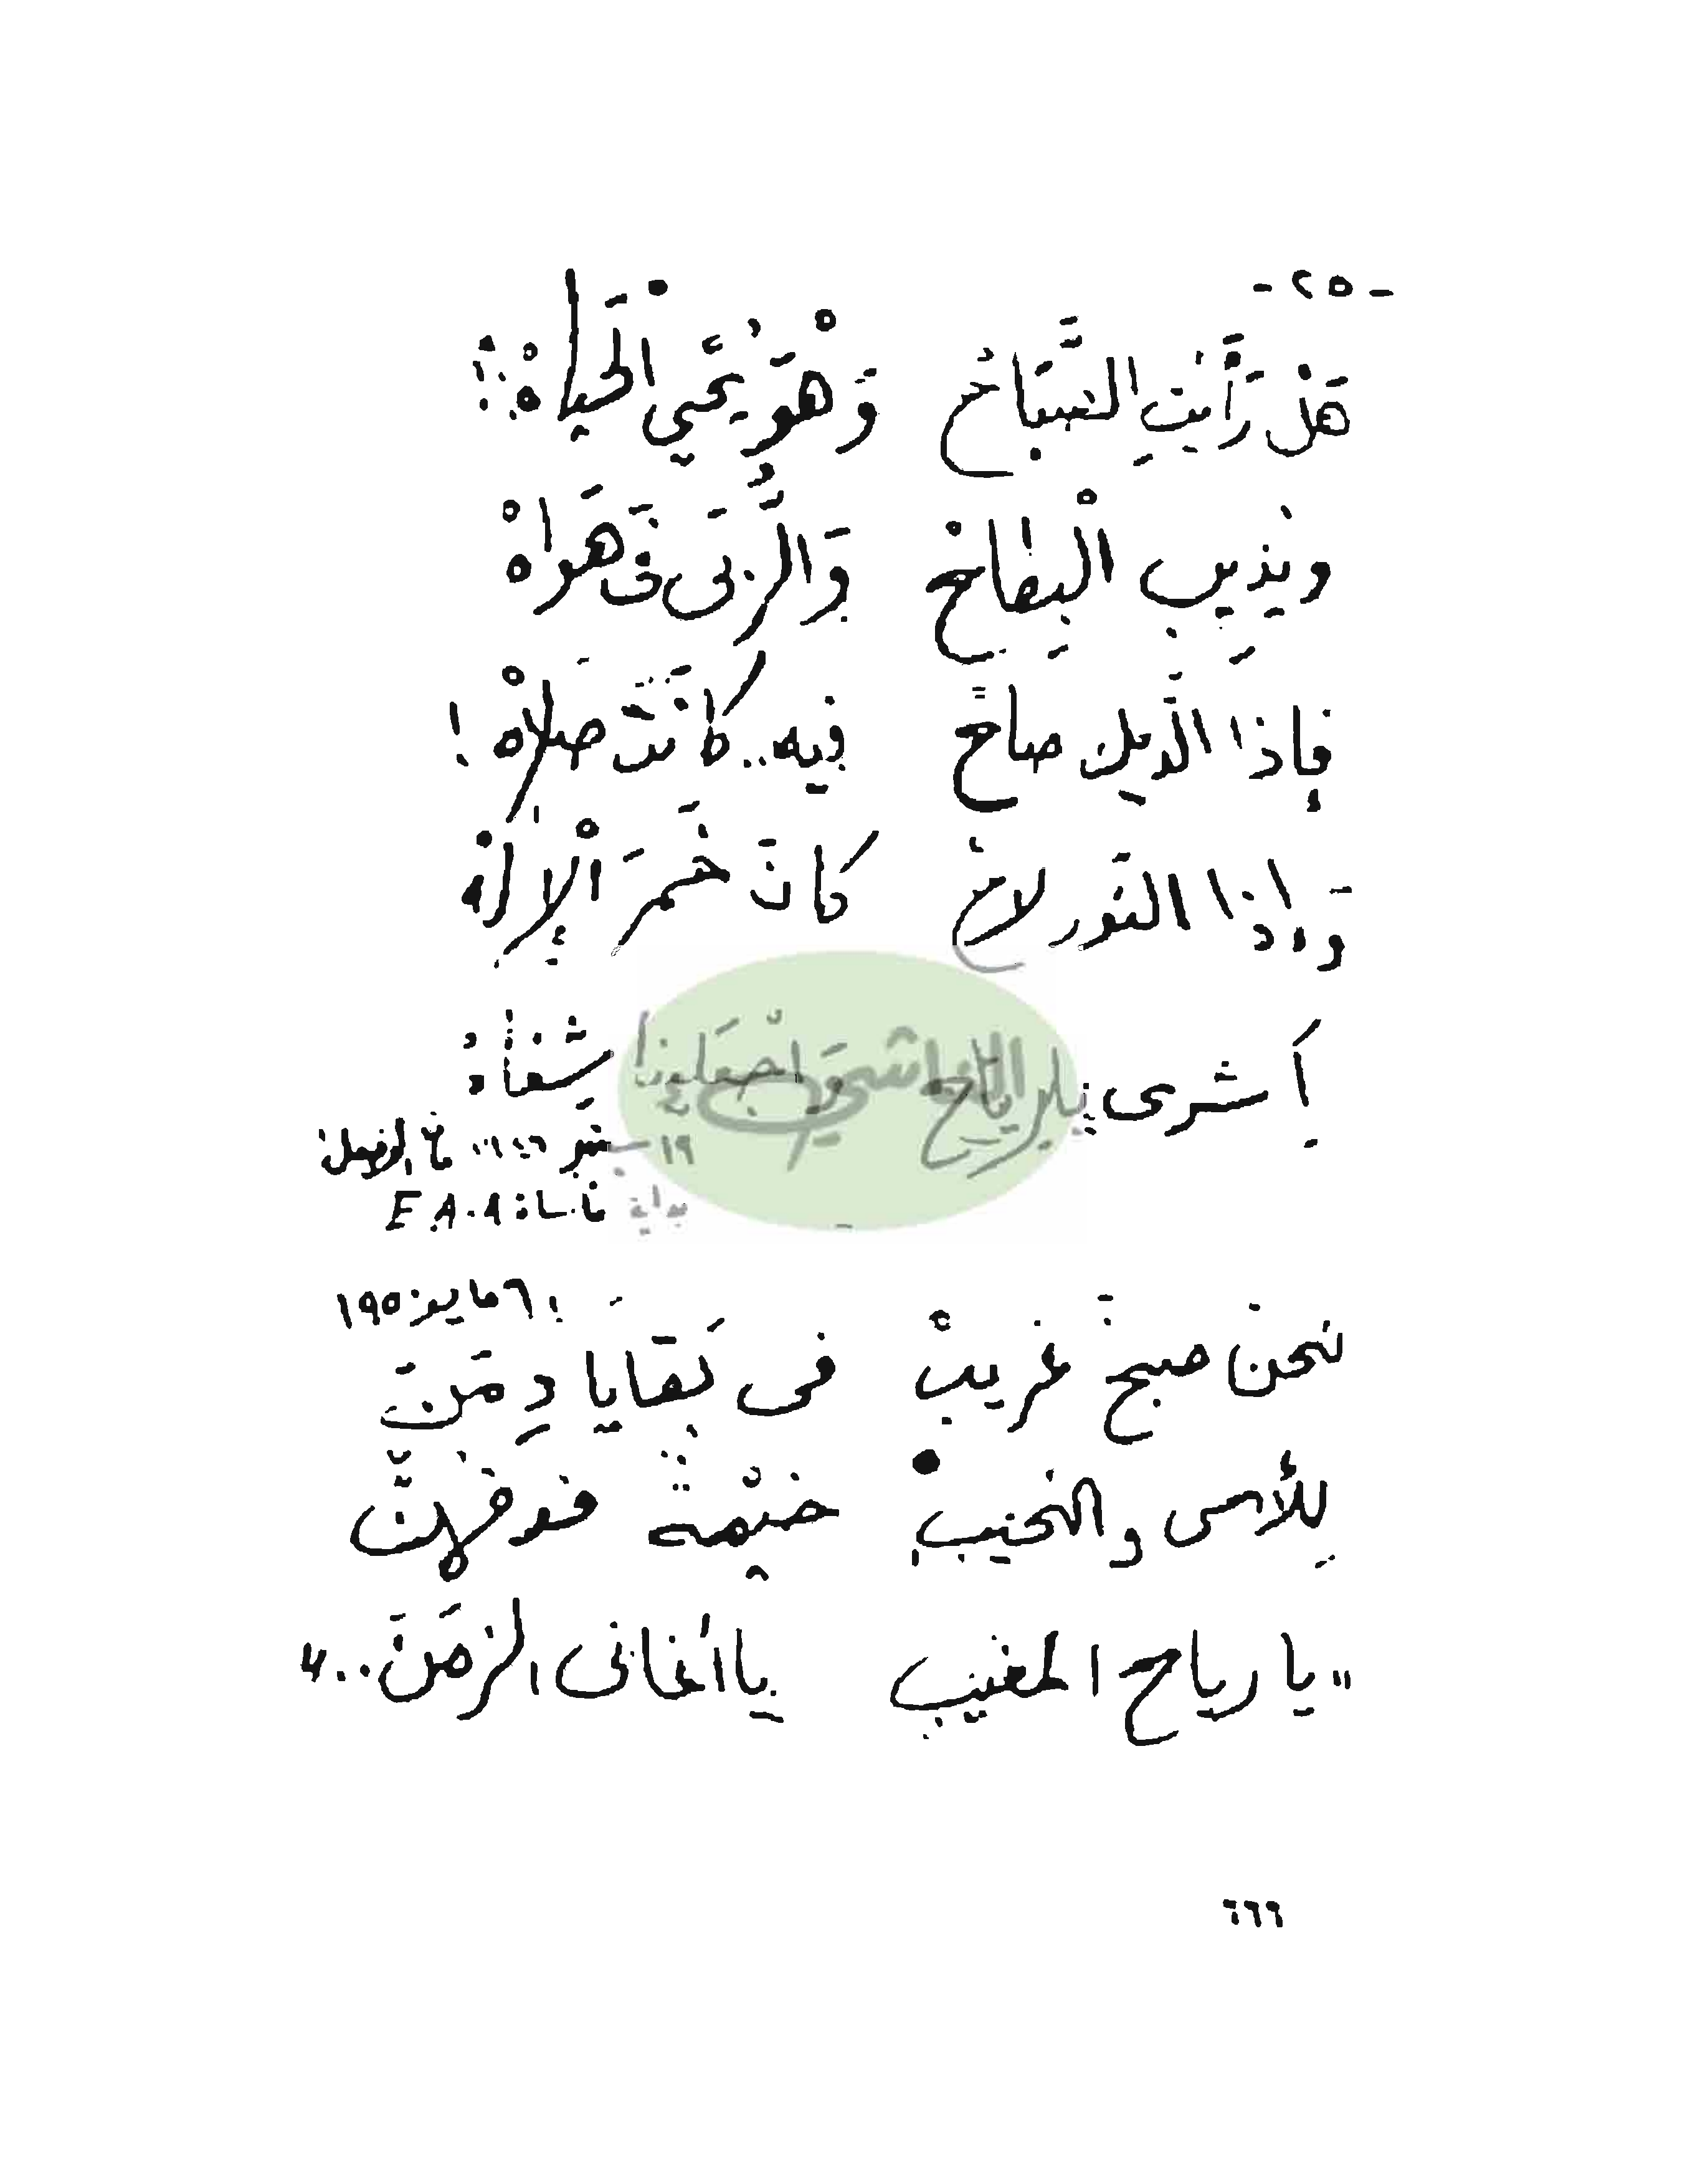 - ٢٥ -
هَلْ رَأَيْتِ الصَّبَاحْ وَهْوَ يُحْيِي الْحَيَاهْ؟!
ويُذيبِ الْبِطَاحْ وَالرُّبَى فَ هَوَاهْ
فإذا الدّيك صاحْ فيه.. كانَتْ صَلاَهْ!
وَإذا النّور لاحْ كانَ خَمرَ الْإِلهْ
أَشرى يا رياح وَاجْعَلينا شفاهْ
١٩
E A.A
٦ مايو ١٩٥٠
نحن صبحٌ غريبْ فى بَقَايَا دِمَنْ
لِلأسى والنحيبْ خَيْمةٌ فوقهنّ
"يا رياح المغيب يا أغانى الزمَنْ.."
٦٦٦